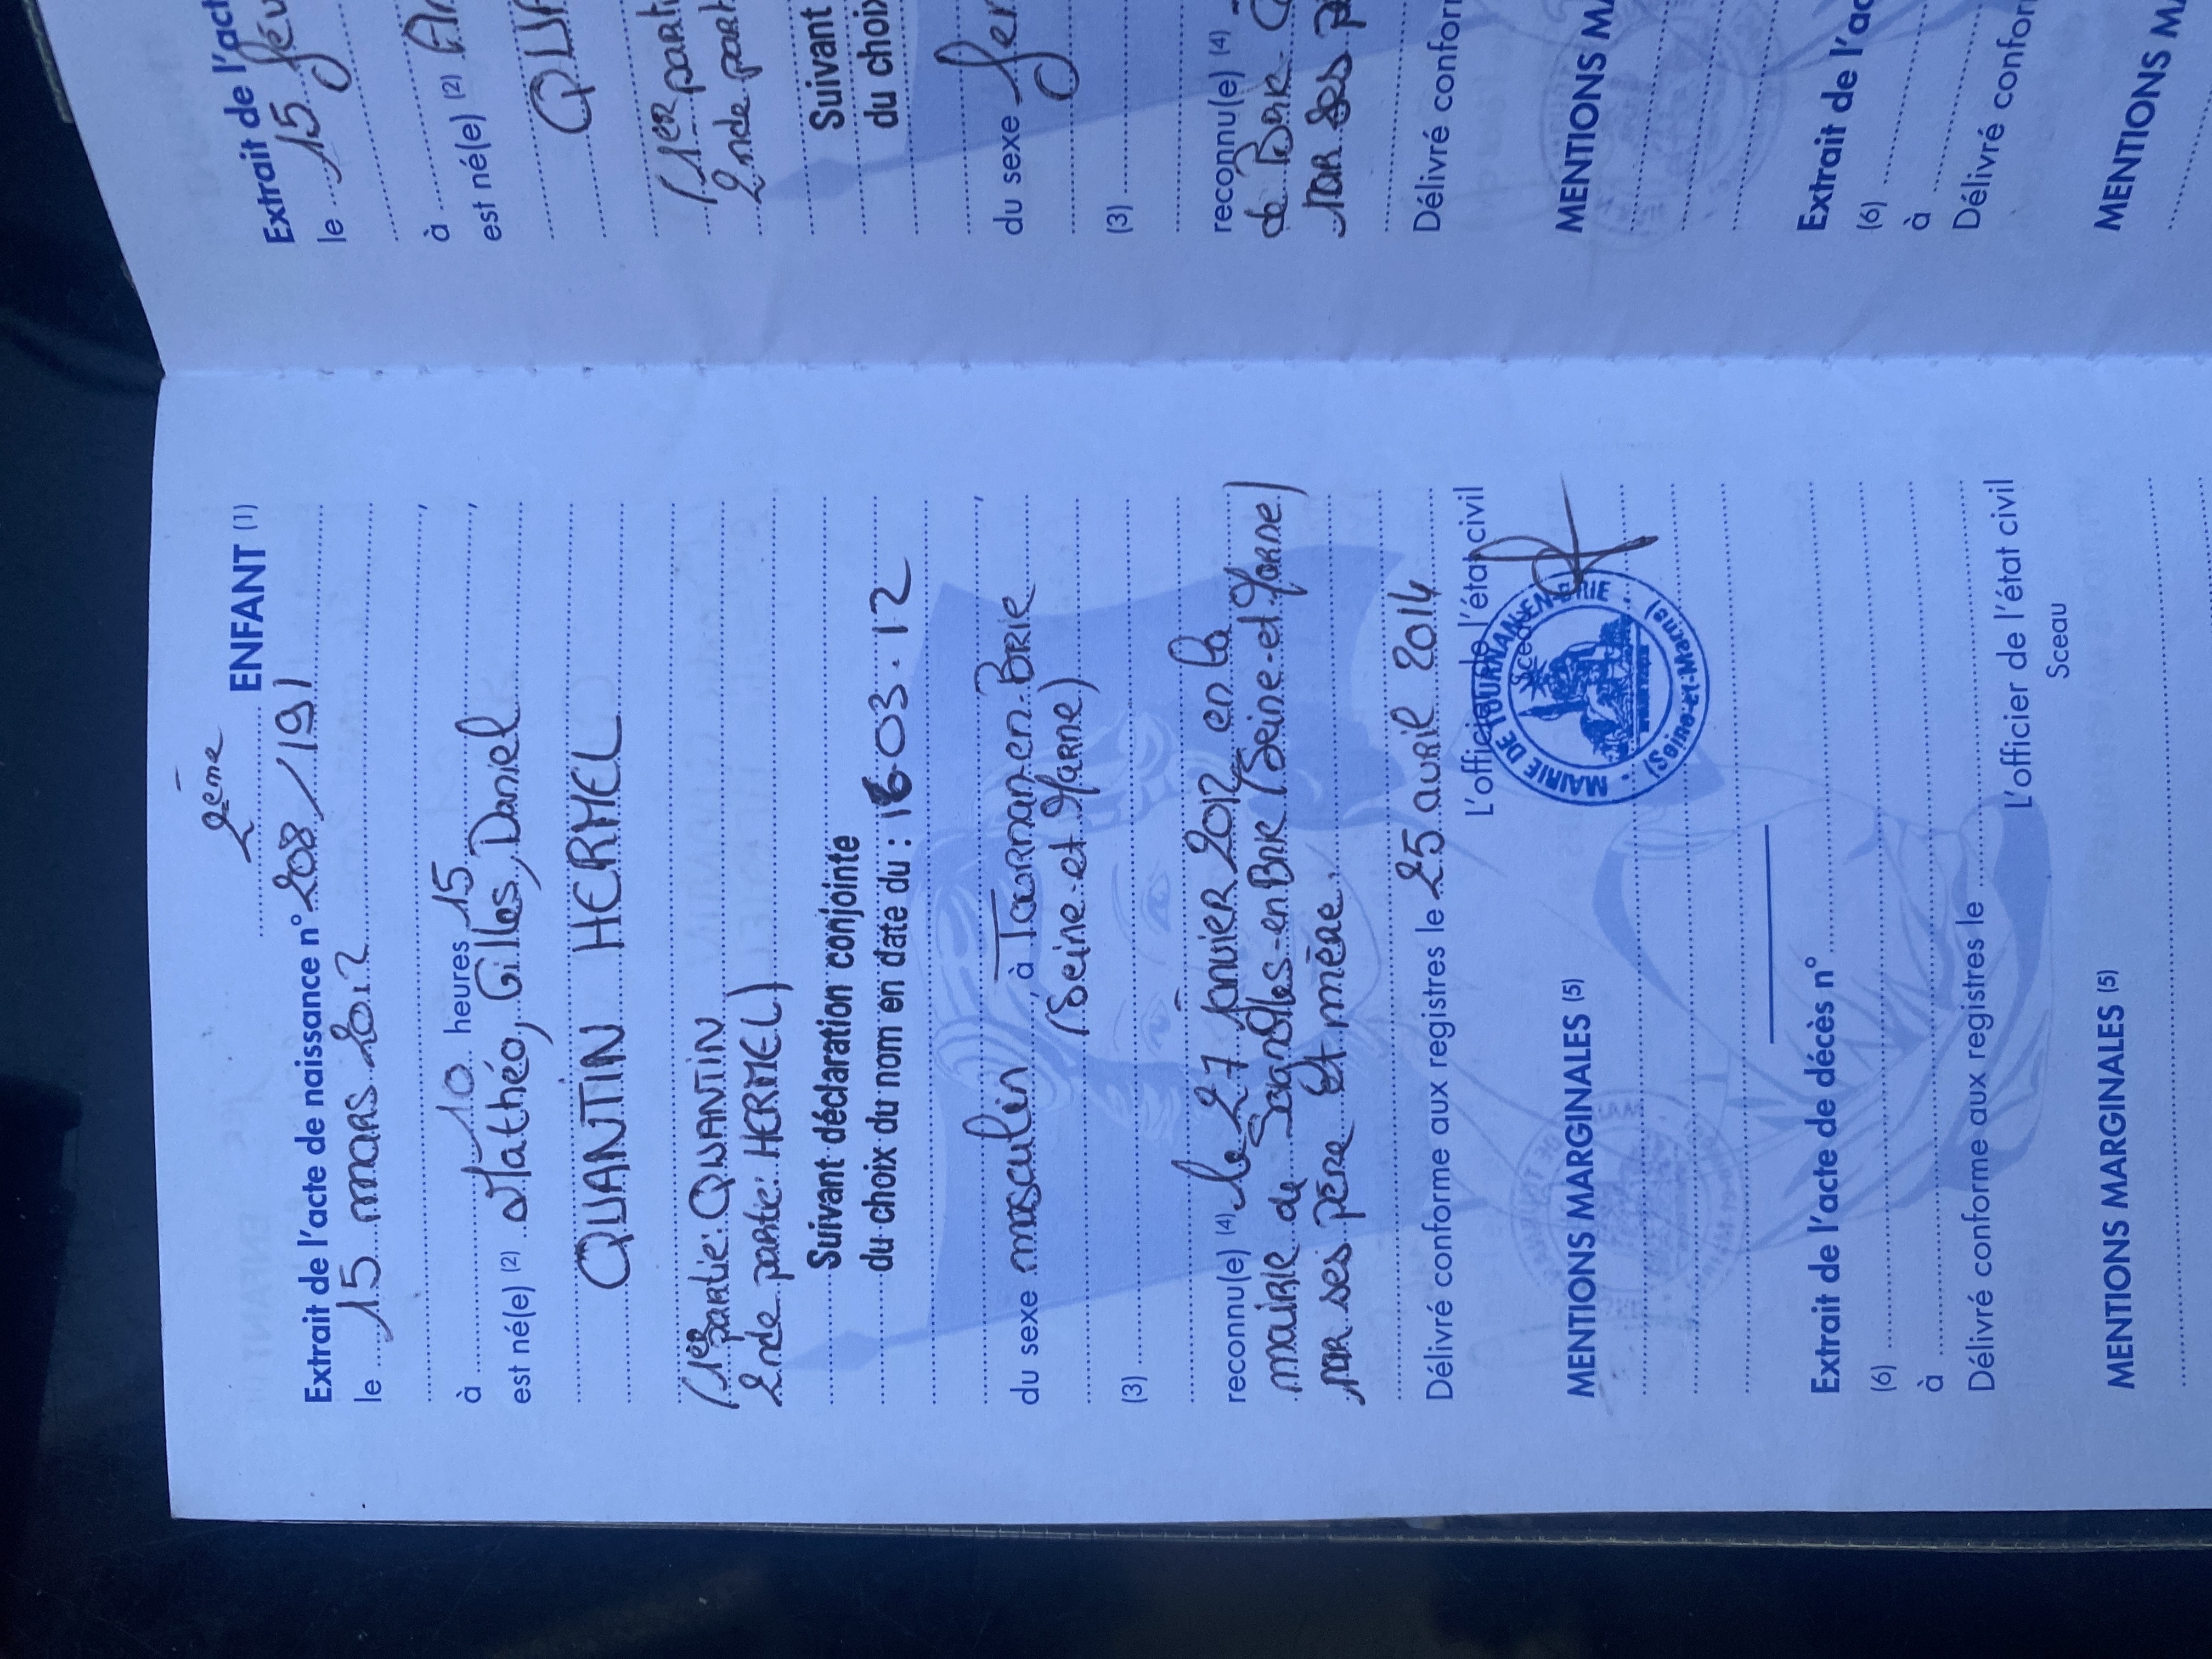 2ème ENFANT (1)
Extrait de l'acte de naissance n° 208/191
le 15 mars 2012
à 10 heures 15
est né(e) (2) Mathéo, Gilles, Daniel
QUANTIN HERMEL
(1er partie: QUANTIN
2nde partie: HERMEL)
Suivant déclaration conjointe
du choix du nom en date du : 16.03.12
du sexe masculin, à Tournan-en-Brie,
(Seine-et-Marne)
(3)
reconnu(e) (4) le 27 janvier 2012 en la
mairie de (Seine-et-Marne)
par ses père et mère.
Délivré conforme aux registres le 25 avril 2014
L'officier de l'état civil
Sceau
MAIRIE DE TOURNAN-EN-BRIE
(Seine-et-Marne)
MENTIONS MARGINALES (5)
Extrait de l'acte de décès n°
(6)
à
Délivré conforme aux registres le
L'officier de l'état civil
Sceau
MENTIONS MARGINALES (5)
Extrait de l'act
le 15 fév
à
est né(e) (2)
QU
(1er parti
2nde part
Suivant
du choix
du sexe fé
(3)
reconnu(e) (4)
par ses p
Délivré confor
MENTIONS MA
Extrait de l'ac
(6)
à
Délivré confor
MENTIONS MA